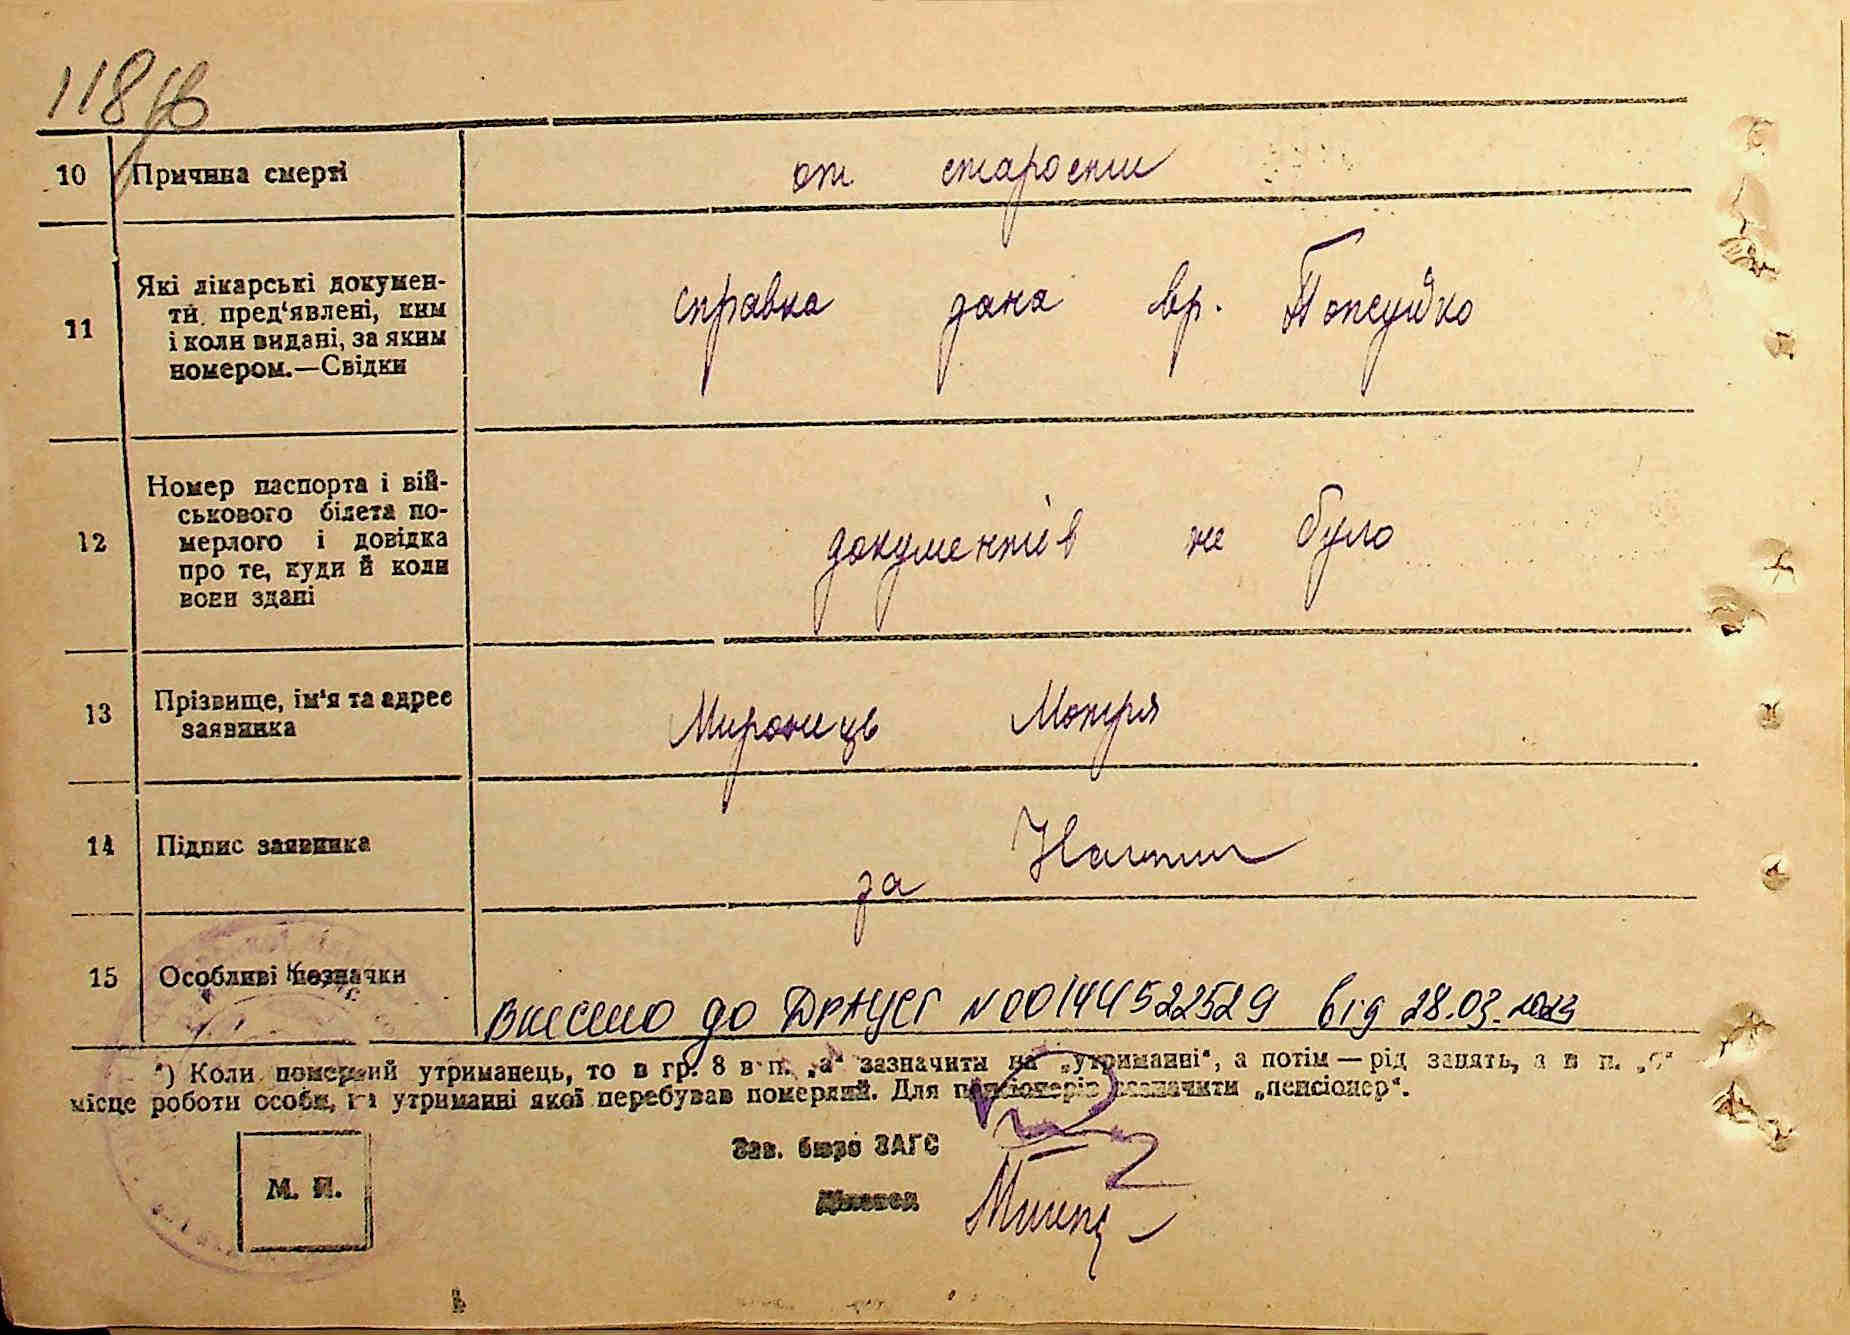 118 зв
10 Причина смерті от старости
11 Які лікарські докумен-
ти пред'явлені, ким
і коли видані, за яким
номером.—Свідки
справка дана вр. Попсуйко
12 Номер паспорта і вій-
ськового білета по-
мерлого і довідка
про те, куди й коли
вони здані
документів не було
13 Прізвище, ім'я та адрес
заявника
Миронець Мотря
14 Підпис заявника
за
15 Особливі позначки
Внесено до ДРАЦСГ N 00144522529 від 28.03.2023
*) Коли померлий утриманець, то в гр. 8 в п. „а“ зазначити на „утриманні“, а потім — рід занять, а в п. „б“
місце роботи особи, на утриманні якої перебував померлий. Для пенсіонерів зазначити „пенсіонер“.
Зав. бюро ЗАГС
Діловод
М. П.